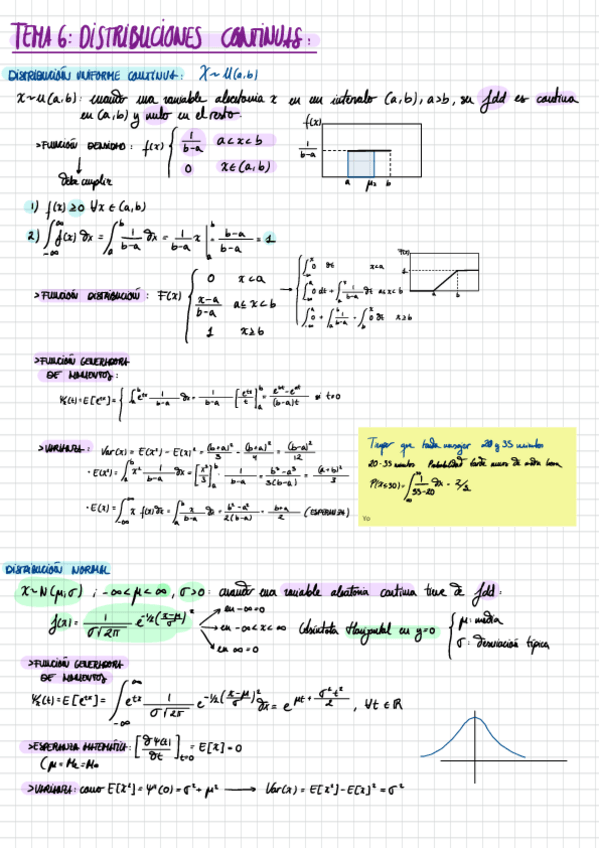 TEMA 6: DISTRIBUCIONES CONTINUAS:
DISTRIBUCIÓN UNIFORME CONTINUA: X∼U(a,b)
X∼U(a,b): cuando una variable aleatoria x en un intervalo (a,b), a>b, su fdd es continua
en (a,b) y nulo en el resto.
f(x)
>FUNCIÓN DENSIDAD: f(x) { 1/(b-a) a<x<b
0 x∈(a,b)
1/(b-a)
a μx b
debe cumplir
1) f(x) ≥0 ∀x∈(a,b)
2) ∫_{-∞}^{∞} f(x) dx = ∫_a^b 1/(b-a) dx = 1/(b-a) x |_a^b = (b-a)/(b-a) = 1
F(x)
1
a b
>FUNCIÓN DISTRIBUCIÓN: F(x) { 0 x<a
(x-a)/(b-a) a≤x<b
1 x≥b
∫_{-∞}^x 0 dt x<a
∫_{-∞}^a 0 dt + ∫_a^x 1/(b-a) dt a≤x<b
∫_{-∞}^a 0 + ∫_a^b 1/(b-a) + ∫_b^x 0 dt x≥b
>FUNCIÓN GENERADORA
DE MOMENTOS:
Ψx(t)=E[e^{tx}]= { ∫_a^b e^{tx} 1/(b-a) dx = 1/(b-a) [e^{tx}/t]_a^b = (e^{bt}-e^{at})/((b-a)t) si t=0
>VARIANZA: Var(x) = E(x²) - E(x)² = (b+a)²/3 - (b+a)²/4 = (b-a)²/12
· E(x²) = ∫_a^b x² 1/(b-a) dx = [x³/3]_a^b · 1/(b-a) = (b³-a³)/(3(b-a)) = (a+b)²/3
· E(x) = ∫_{-∞}^{∞} x f(x) dx = ∫_a^b x/(b-a) dx = (b²-a²)/(2(b-a)) = (b+a)/2 (ESPERANZA)
20 y 35 minutos
20-35 minutos Probabilidad tarde menos de media hora
P(x≤30) = ∫_{20}^{30} 1/(35-20) dx = 2/3
DISTRIBUCIÓN NORMAL
X∼N(μ;σ) ; -∞<μ<∞, σ>0: cuando una variable aleatoria continua tiene de fdd:
f(x) = 1/(σ√2π) e^{-1/2((x-μ)/σ)²}
en -∞=0
en -∞<x<∞ (Asíntota Horizontal en y=0
en ∞=0
μ: media
σ: desviación típica
>FUNCIÓN GENERADORA
DE MOMENTOS
Ψx(t) = E[e^{tx}] = ∫_{-∞}^{∞} e^{tx} 1/(σ√2π) e^{-1/2((x-μ)/σ)²} dx = e^{μt + σ²t²/2}, ∀t∈ℝ
>ESPERANZA MATEMÁTICA: [∂Ψ(t)/∂t]_{t=0} = E[x] = 0
(μ=Me=Mo
>VARIANZA: como E[x²] = Ψ²(0) = σ²+μ² → Var(x) = E[x²] - E[x]² = σ²